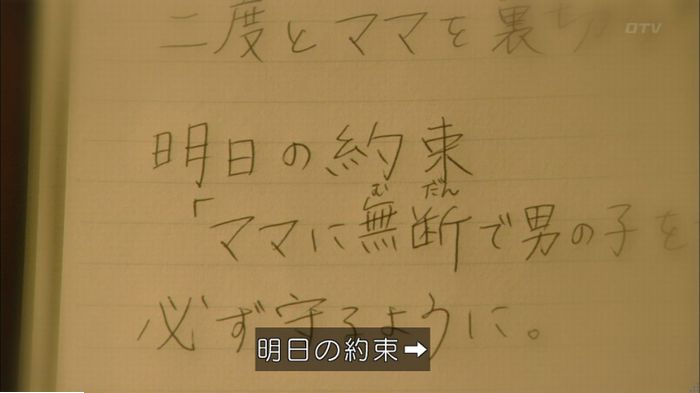 二度とママを裏切
OTV
明日の約束
むだん
「ママに無断で男の子を
必ず守るように。
明日の約束➡